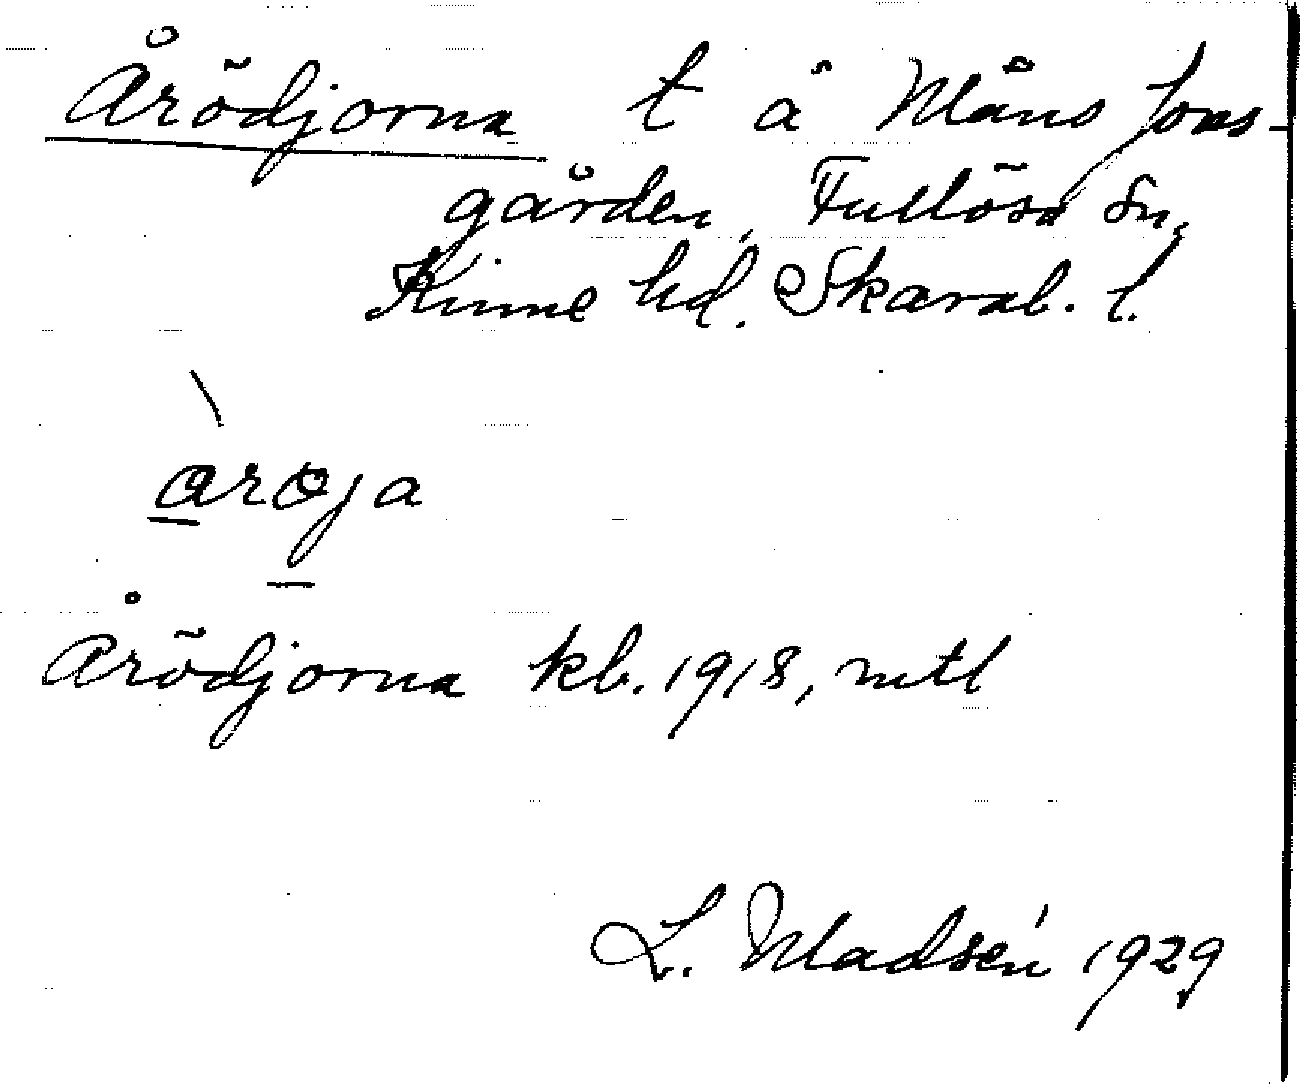 Årödjorna t å Måns Jons-
gården, Fullösa sn,
Kinne hd. Skarab. l.
Årödjorna kb. 1918, mtl
L. Madsén 1929